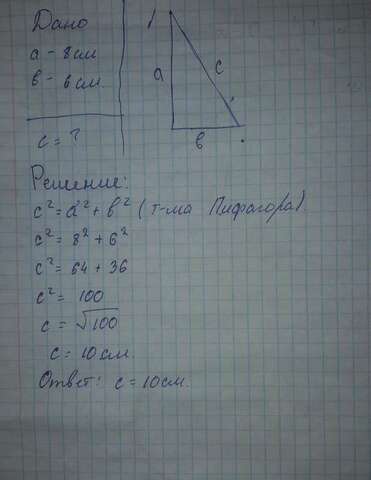 Дано
a - 8 см
в - 6 см
c = ?
a
c
в
Решение:
c² = a² + в² (т-ма Пифагора)
c² = 8² + 6²
c² = 64 + 36
c² = 100
c = √100
c = 10 см.
Ответ: c = 10 см.